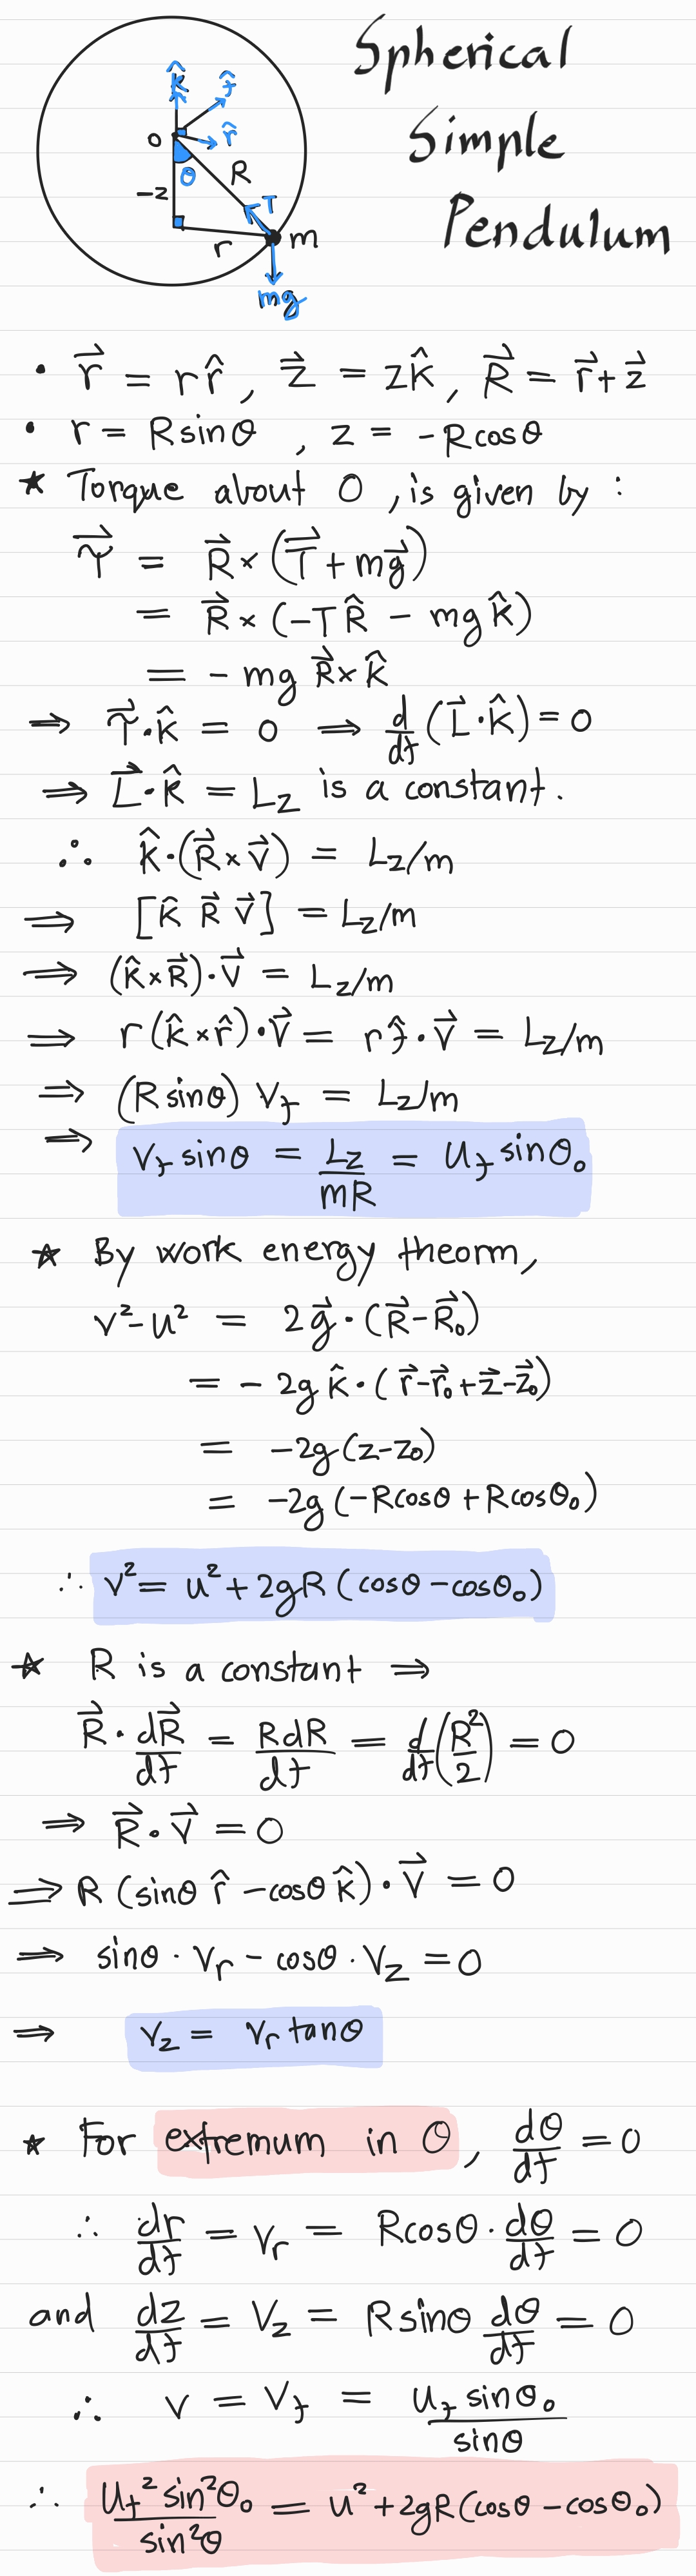 Spherical
Simple
Pendulum
k̂ t̂
O r̂
θ R
-z T
r m
mg
• r⃗ = r r̂ , z⃗ = z k̂ , R⃗ = r⃗ + z⃗
• r = R sinθ , z = -R cosθ
★ Torque about O , is given by :
τ⃗ = R⃗ × (T⃗ + m g⃗)
= R⃗ × (-T R̂ - mg k̂)
= - mg R⃗ × k̂
⇒ τ⃗ · k̂ = 0 ⇒ d/dt (L⃗ · k̂) = 0
⇒ L⃗ · k̂ = L_z is a constant .
∴ k̂ · (R⃗ × v⃗) = L_z/m
⇒ [k̂ R⃗ v⃗] = L_z/m
⇒ (k̂ × R⃗) · v⃗ = L_z/m
⇒ r (k̂ × r̂) · v⃗ = r t̂ · v⃗ = L_z/m
⇒ (R sinθ) v_t = L_z/m
⇒ v_t sinθ = L_z/mR = u_t sinθ₀
★ By work energy theorm,
v² - u² = 2 g⃗ · (R⃗ - R⃗₀)
= - 2g k̂ · (r⃗ - r⃗₀ + z⃗ - z⃗₀)
= -2g (z - z₀)
= -2g (-R cosθ + R cosθ₀)
∴ v² = u² + 2gR (cosθ - cosθ₀)
★ R is a constant ⇒
R⃗ · dR⃗/dt = R dR/dt = d/dt (R²/2) = 0
⇒ R⃗ · v⃗ = 0
⇒ R (sinθ r̂ - cosθ k̂) · v⃗ = 0
⇒ sinθ · v_r - cosθ · v_z = 0
⇒ v_z = v_r tanθ
★ For extremum in θ , dθ/dt = 0
∴ dr/dt = v_r = R cosθ · dθ/dt = 0
and dz/dt = v_z = R sinθ dθ/dt = 0
∴ v = v_t = u_t sinθ₀/sinθ
∴ u_t² sin²θ₀/sin²θ = u² + 2gR (cosθ - cosθ₀)